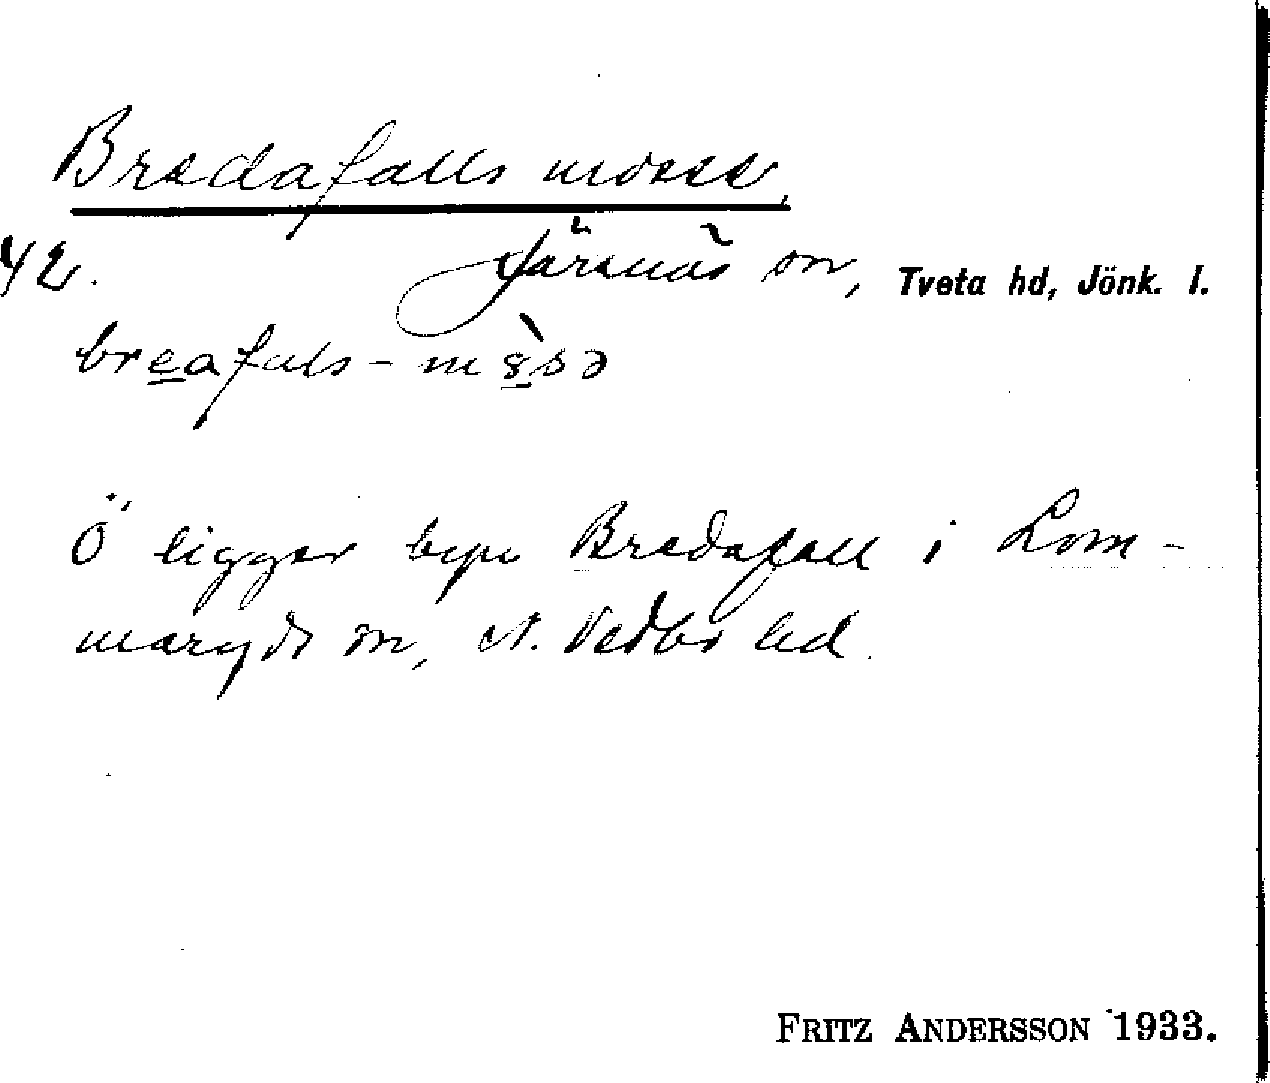 Bredafalls mosse
42.
Järsnäs sn, Tveta hd, Jönk. l.
breafals-mòsə
Ö ligger byn Bredafall i Lom-
maryds sn, N. Vedbo hd.
FRITZ ANDERSSON 1933.